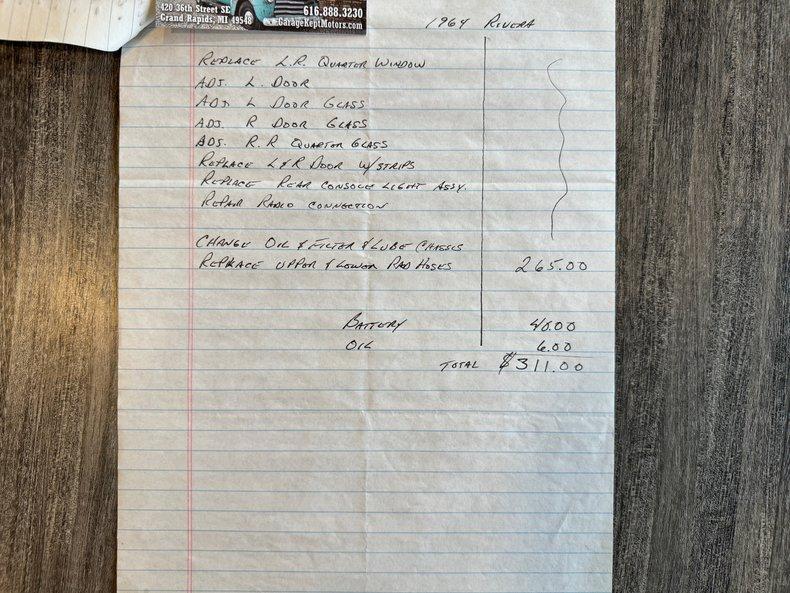 420 36th Street SE
Grand Rapids, MI 49548
616.888.3230
GarageKeptMotors.com
1964 RIVERA
REPLACE L.R. QUARTER WINDOW
ADJ. L. DOOR
ADJ. L DOOR GLASS
ADJ. R DOOR GLASS
ADJ. R.R QUARTER GLASS
REPLACE L&R DOOR W/STRIPS
REPLACE REAR CONSOLE LIGHT ASSY.
REPAIR RADIO CONNECTION
CHANGE OIL & FILTER & LUBE CHASSIS
REPLACE UPPER & LOWER RAD HOSES 265.00
BATTERY 40.00
OIL 6.00
TOTAL $311.00